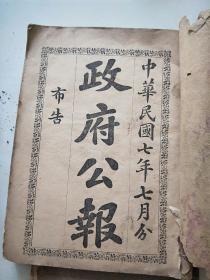 中華民國七年七月分
政府公報
布告